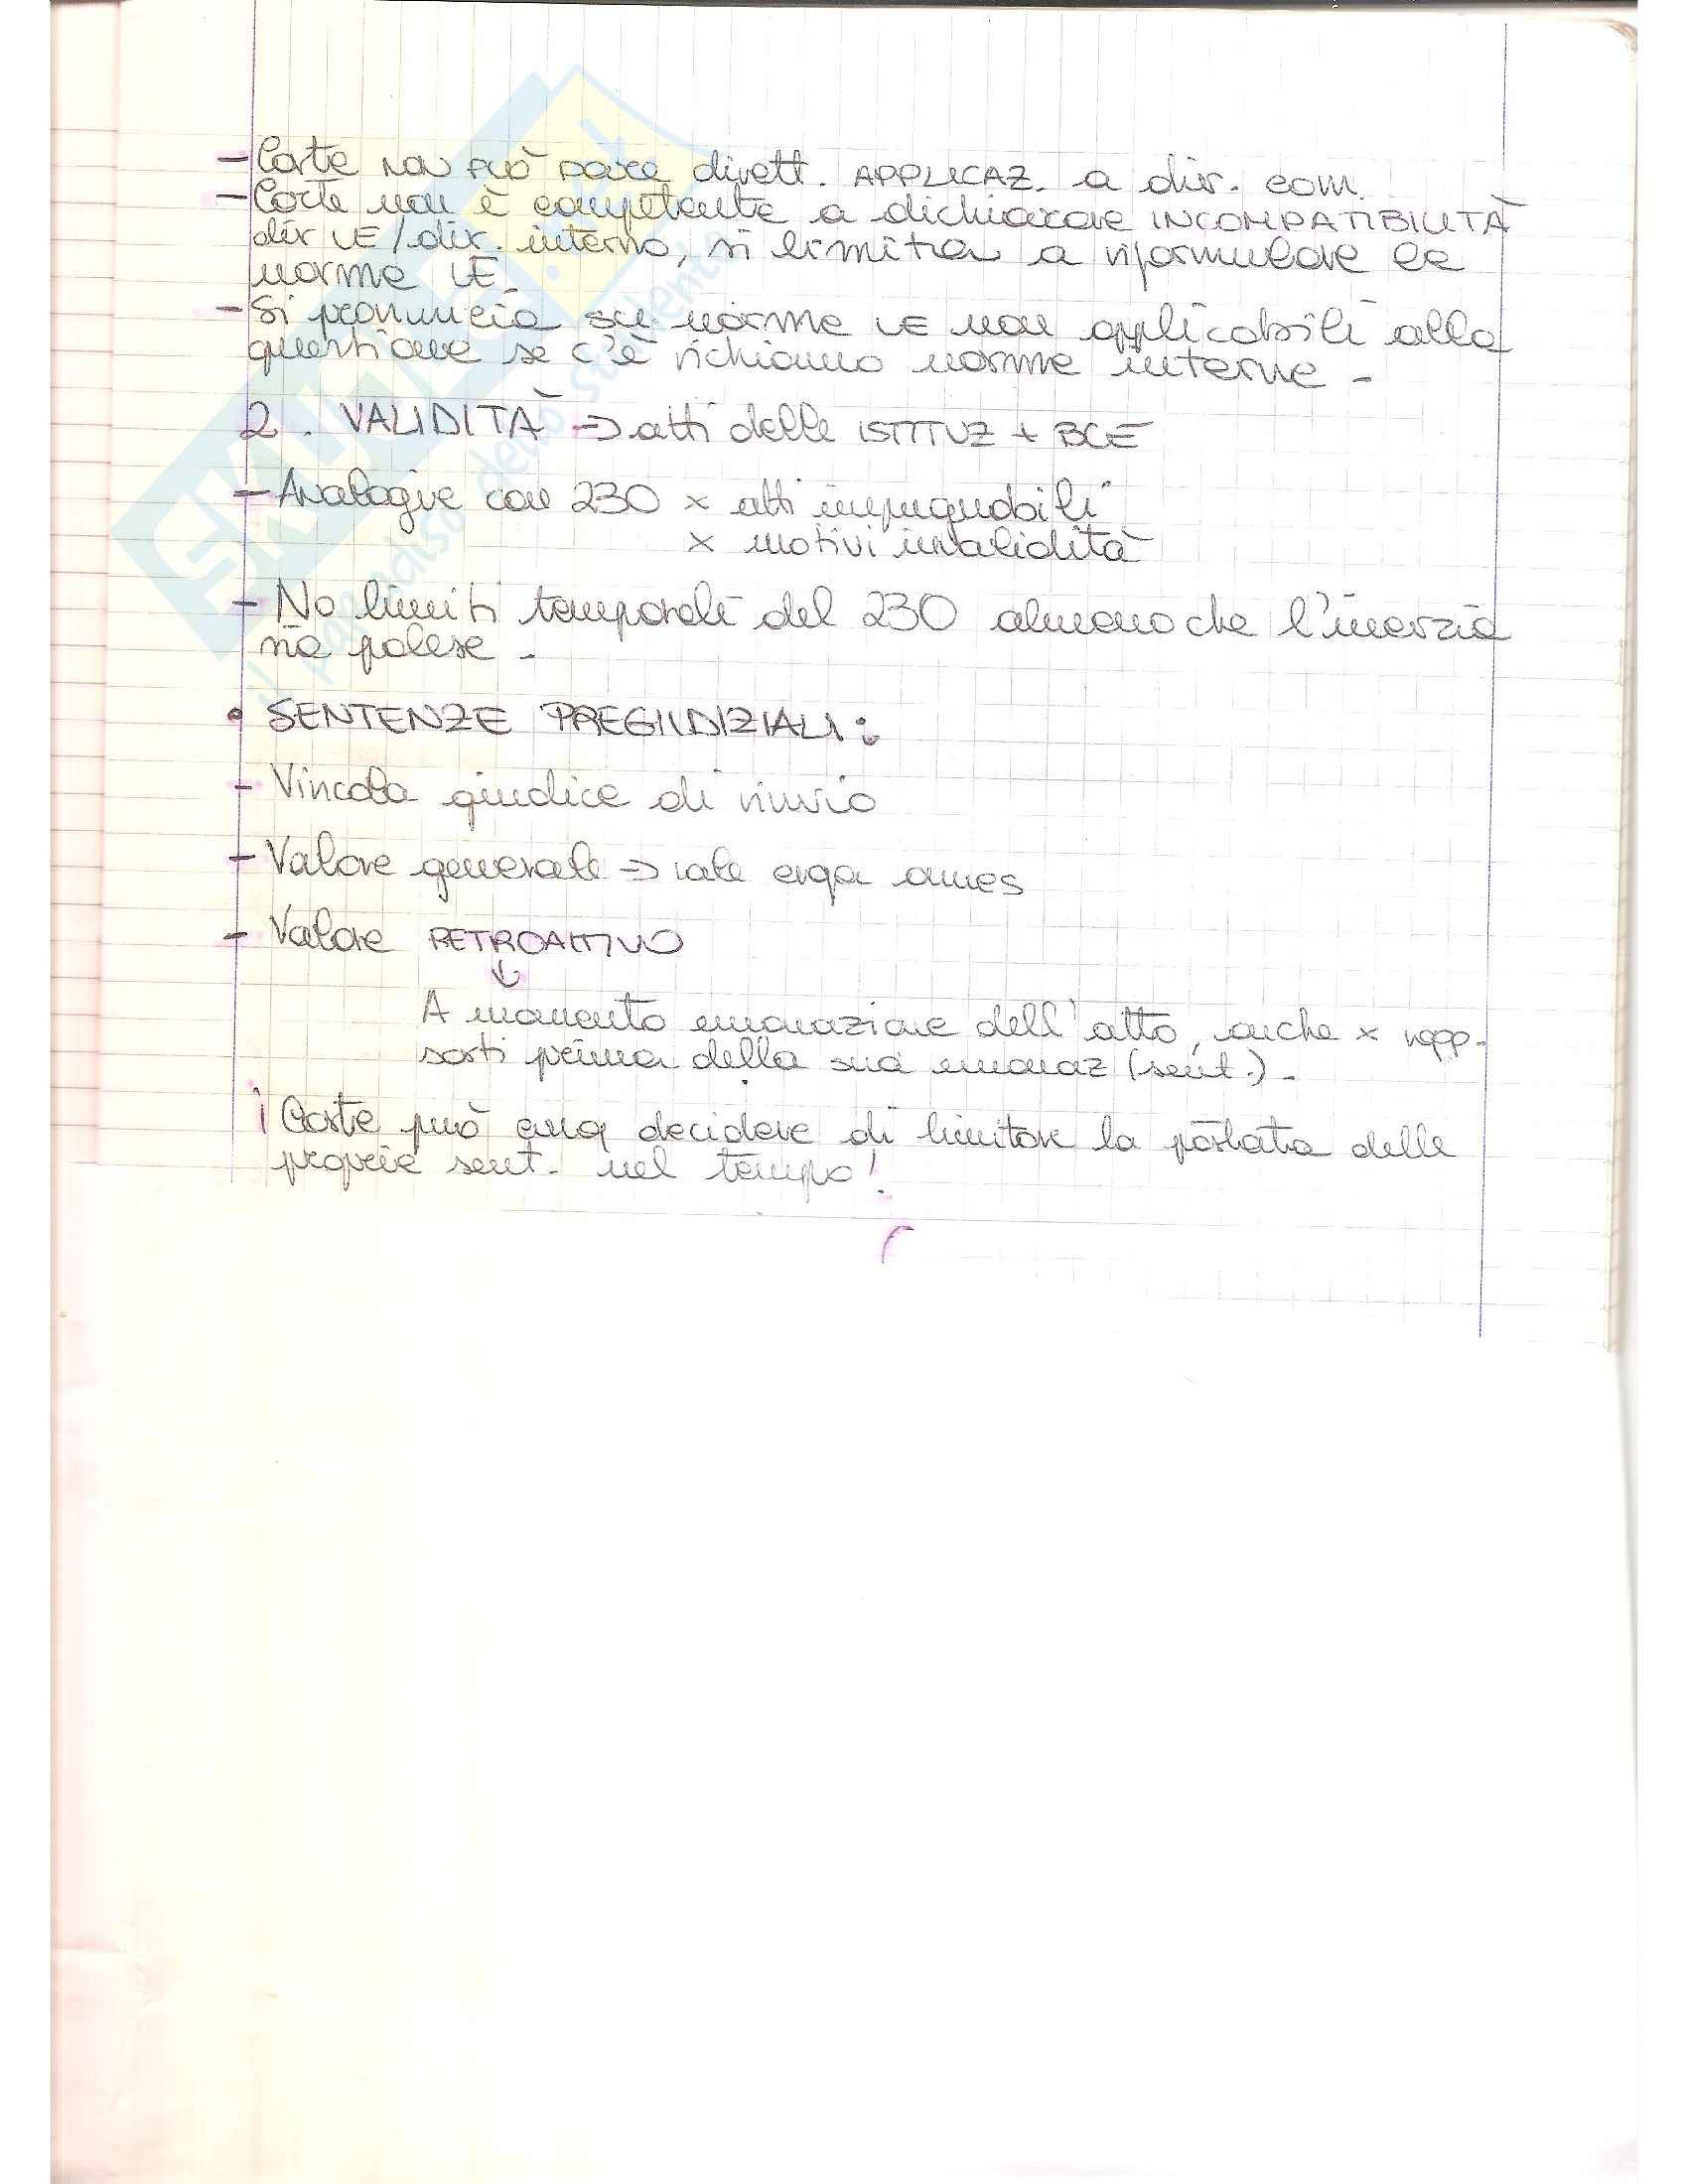 - Corte non può dare dirett. APPLICAZ. a dir. com.
- Corte non è competente a dichiarare INCOMPATIBILITÀ
dir UE/dir. interno, si limita a riformulare le
norme UE.
- Si pronuncia su norme UE non applicabili alla
questione se c'è richiamo norme interne -
2. VALIDITÀ => atti delle ISTITUZ + BCE
- Analogie con 230 x atti impugnabili
x motivi invalidità
- No limiti temporali del 230 almeno che l'inerzia
sia palese -
• SENTENZE PREGIUDIZIALI:
- Vincola giudice di rinvio
- Valore generale => vale erga omnes
- Valore RETROATTIVO
↓
A momento emanazione dell'atto, anche x rapp.
sorti prima della sua emanaz (sent.) -
¡ Corte può decidere di limitare la portata delle
proprie sent. nel tempo!
SKUOLA.net
il paradiso dello studente